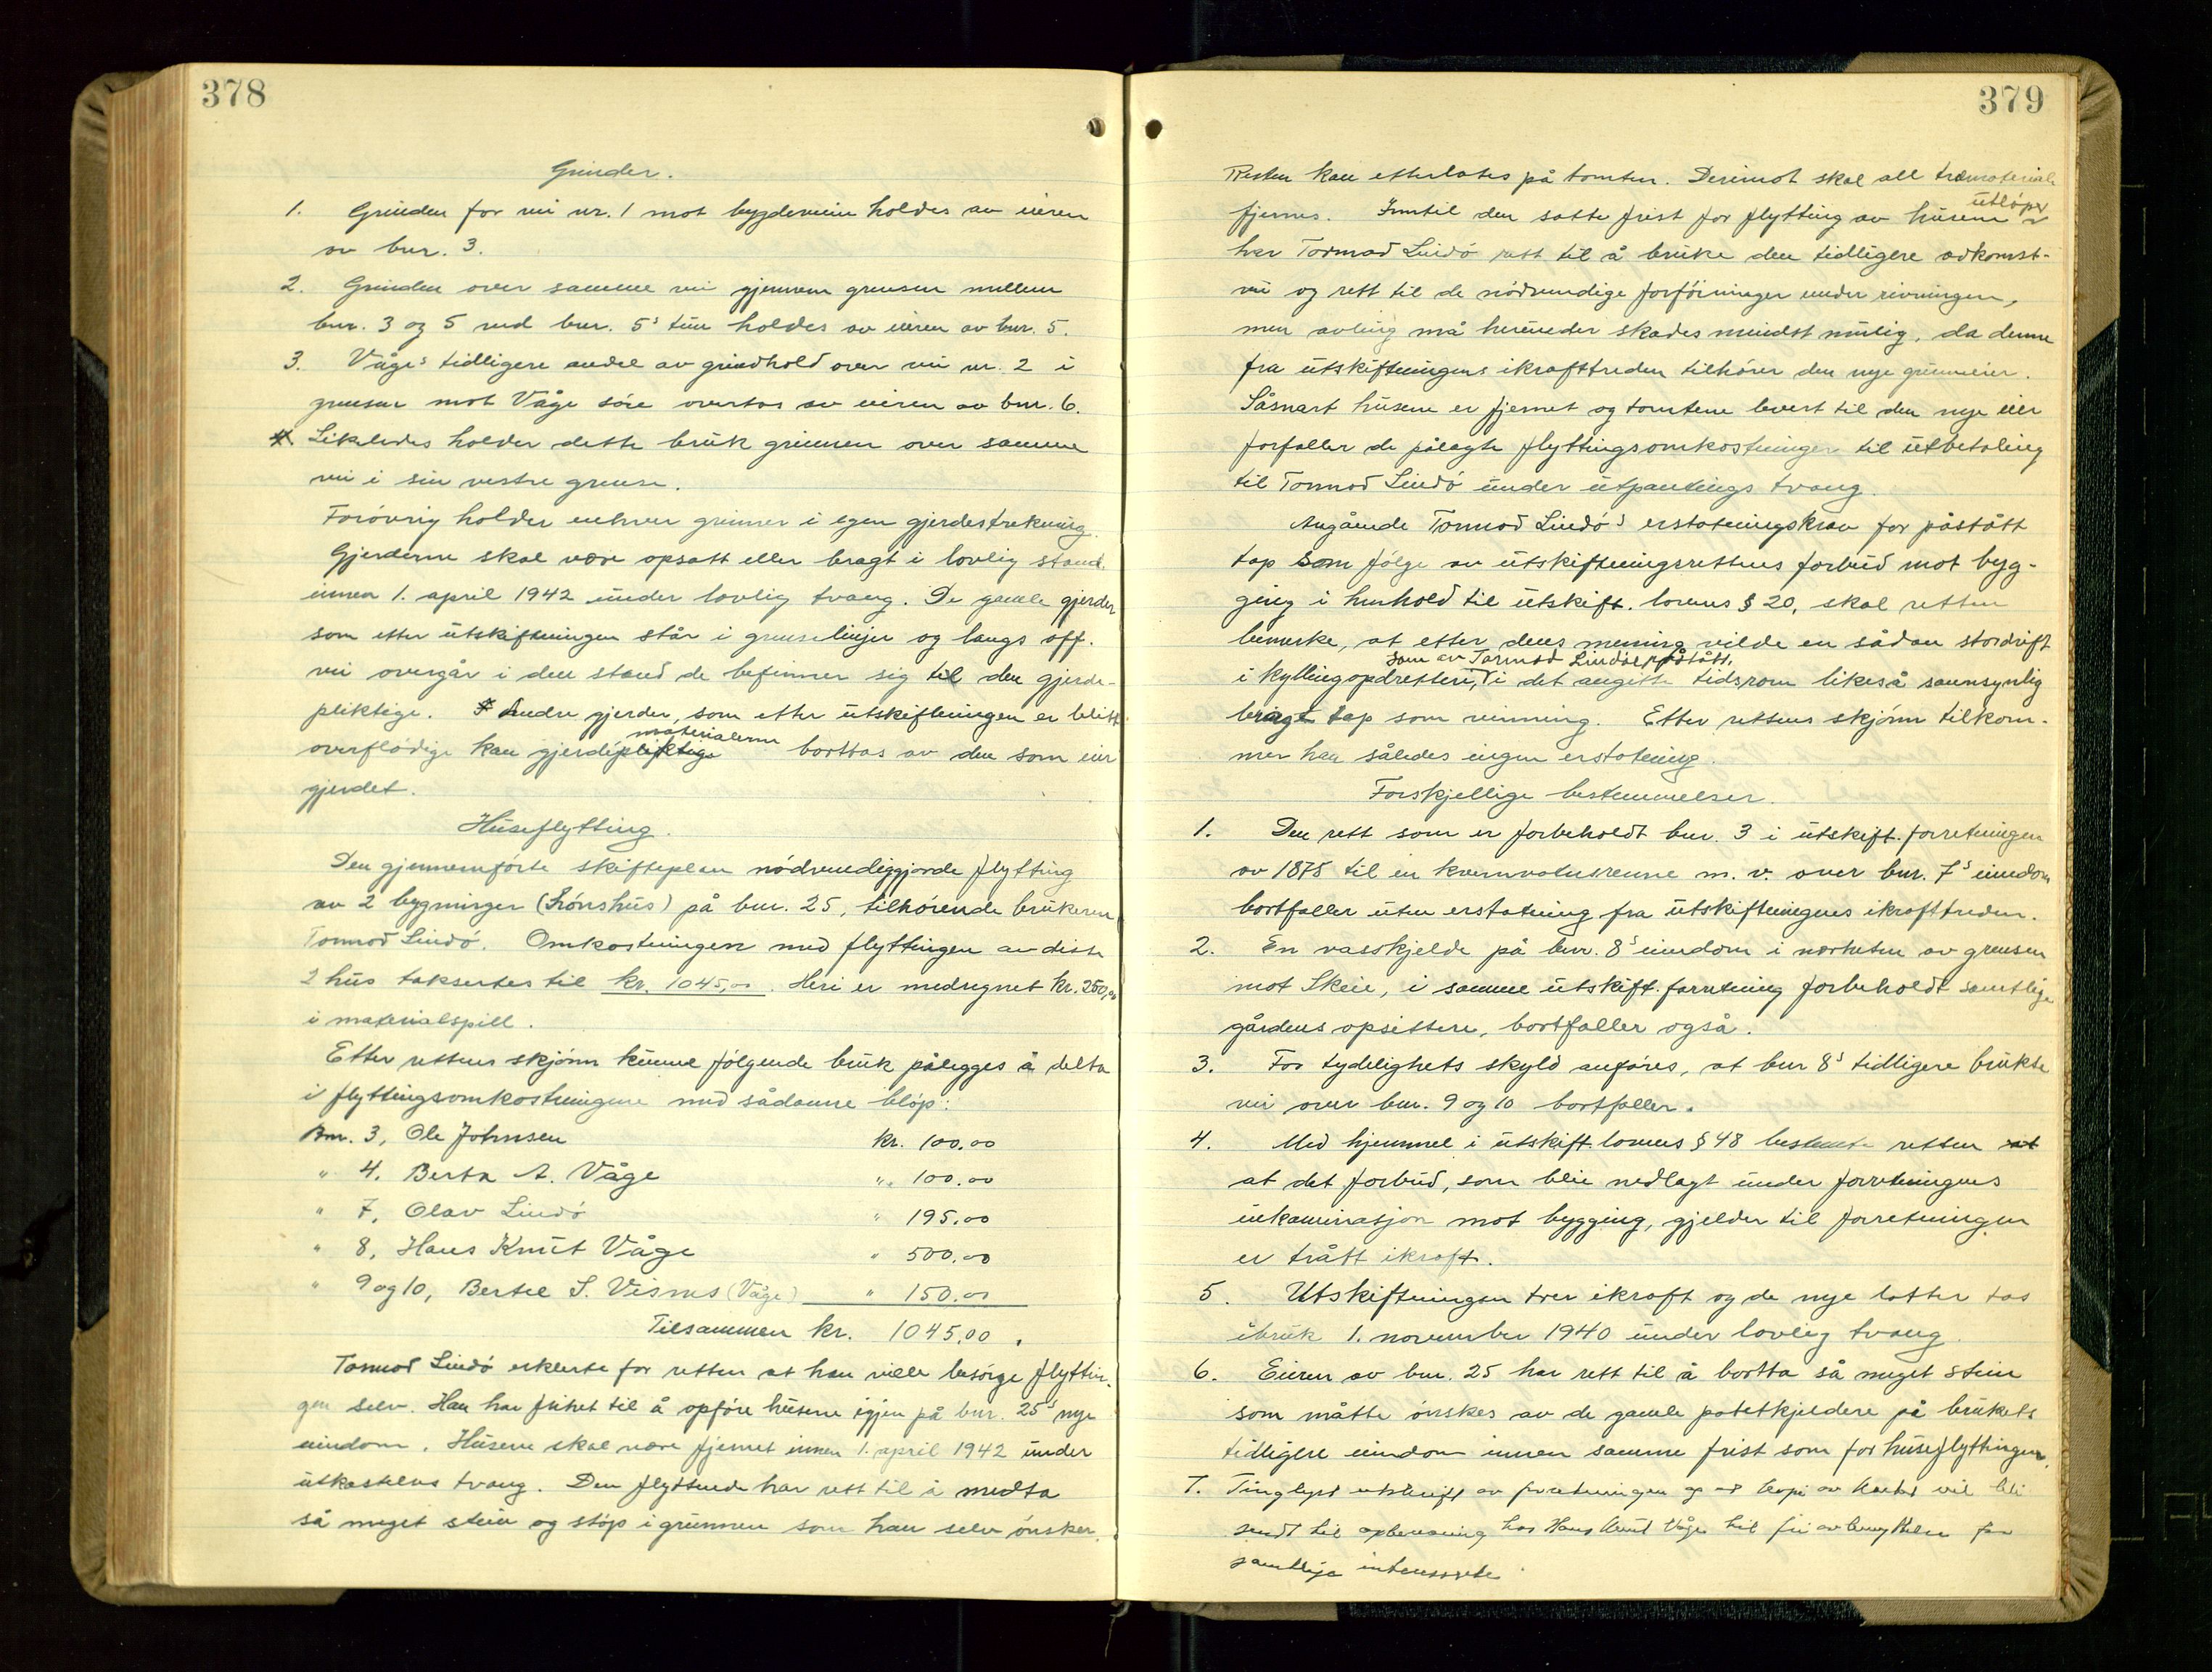 378
Grinder.
1. Grinden for vei nr. 1 mot bygdeveien holdes av eieren
av bnr. 3.
2. Grinden over samme vei gjennem grensen mellem
bnr. 3 og 5 ved bnr. 5s tun holdes av eieren av bnr. 5.
3. Våge's tidligere andel av grindhold over vei nr. 2 i
grensen mot Våge søre overtas av eieren av bnr. 6.
Likeledes holder dette bruk grinnen over samme
vei i sin vestre grense.
Forøvrig holder enhver grinner i egen gjerdestrekning.
Gjerderne skal være opsatt eller bragt i lovlig stand
innen 1. april 1942 under lovlig tvang. De gamle gjerder
som etter utskiftningen står i grenselinjer og langs off.
vei overgår i den stand de befinner sig til den gjerde-
pliktige. Andre gjerder, som etter utskiftningen er blitt
overflødige kan gjerdepliktige materialerne borttas av den som eier
gjerdet.
Huseflytting.
Den gjennemførte skifteplan nødvendiggjorde flytting
av 2 bygninger (hønshus) på bnr. 25, tilhørende brukeren
Tormod Lindø. Omkostningen med flyttingen av disse
2 hus taksertes til kr. 1045,00. Heri er medregnet kr. 250,00
i materialspill.
Etter rettens skjønn kunne følgende bruk pålegges å delta
i flyttingsomkostningene med sådanne bløp:
Bnr. 3, Ole Johnsen kr. 100.00
" 4. Berta A. Våge " 100.00
" 7, Olav Lindø " 195.00
" 8, Hans Knut Våge " 500.00
" 9 og 10, Bertel S. Visnes (Våge) " 150.00
Tilsammen kr. 1045,00.
Tormod Lindø erklerte for retten at han ville besørge flyttin-
gen selv. Han har frihet til å opføre husene igjen på bnr. 25s nye
eiendom. Husene skal være fjernet innen 1. april 1942 under
utkastelses tvang. Den flyttende har rett til å medta
så meget stein og støp i grunnen som han selv ønsker.
379
Resten kan etterlates på tomten. Derimot skal all trematerial
fjernes. Inntil den satte frist for flytting av husene utløper
har Tormod Lindø rett til å bruke den tidligere adkomst-
vei og rett til de nødvendige forføininger under rivningen,
men avling må herunder skades mindst mulig, da denne
fra utskiftningens ikrafttreden tilhører den nye grunneier.
Såsnart husene er fjernet og tomtene levert til den nye eier
forfaller de pålagte flyttingsomkostninger til utbetaling
til Tormod Lindø under utpantings tvang.
Angående Tormod Lindø's erstatningskrav for påstått
tap som følge av utskiftningsrettens forbud mot byg-
ging i henhold til utskift. lovens § 20, skal retten
bemerke, at etter dens mening vilde en sådan stordrift
som av Tormod Lindø påstått,
i kyllingopdrettery, i det angitte tidsrom likeså sannsynlig
bragt tap som vinning. Etter rettens skjønn tilkom-
mer han således ingen erstatning.
Forskjellige bestemmelser.
1. Den rett som er forbeholdt bnr. 3 i utskift. forretningen
av 1875 til en kvernvatnsrenne m. v. over bnr. 7s eiendom
bortfaller uten erstatning fra utskiftningens ikrafttreden.
2. En vasskjelde på bnr. 8s eiendom i nærheten av grensen
mot Skeie, i samme utskift. forretning forbeholdt samtlige
gårdens opsittere, bortfaller også.
3. For tydelighets skyld anføres, at bnr 8s tidligere brukte
vei over bnr. 9 og 10 bortfaller.
4. Med hjemmel i utskift. lovens § 48 bestemte retten at
at det forbud, som blev nedlagt under forretningens
inkaminasjon mot bygging, gjelder til forretningen
er trått ikraft.
5. Utskiftningen trer ikraft og de nye lotter tas
ibruk 1. november 1940 under lovlig tvang.
6. Eieren av bnr. 25 har rett til å bortta så meget stein
som måtte ønskes av de gamle potetkjeldere på brukets
tidligere eiendom innen samme frist som for huseflyttingen.
7. Tinglyst utskrift av forretningen og et kopi av kartet vil bli
sendt til opbevaring hos Hans Knut Våge til fri avbenyttelse for
samtlige interesserte.